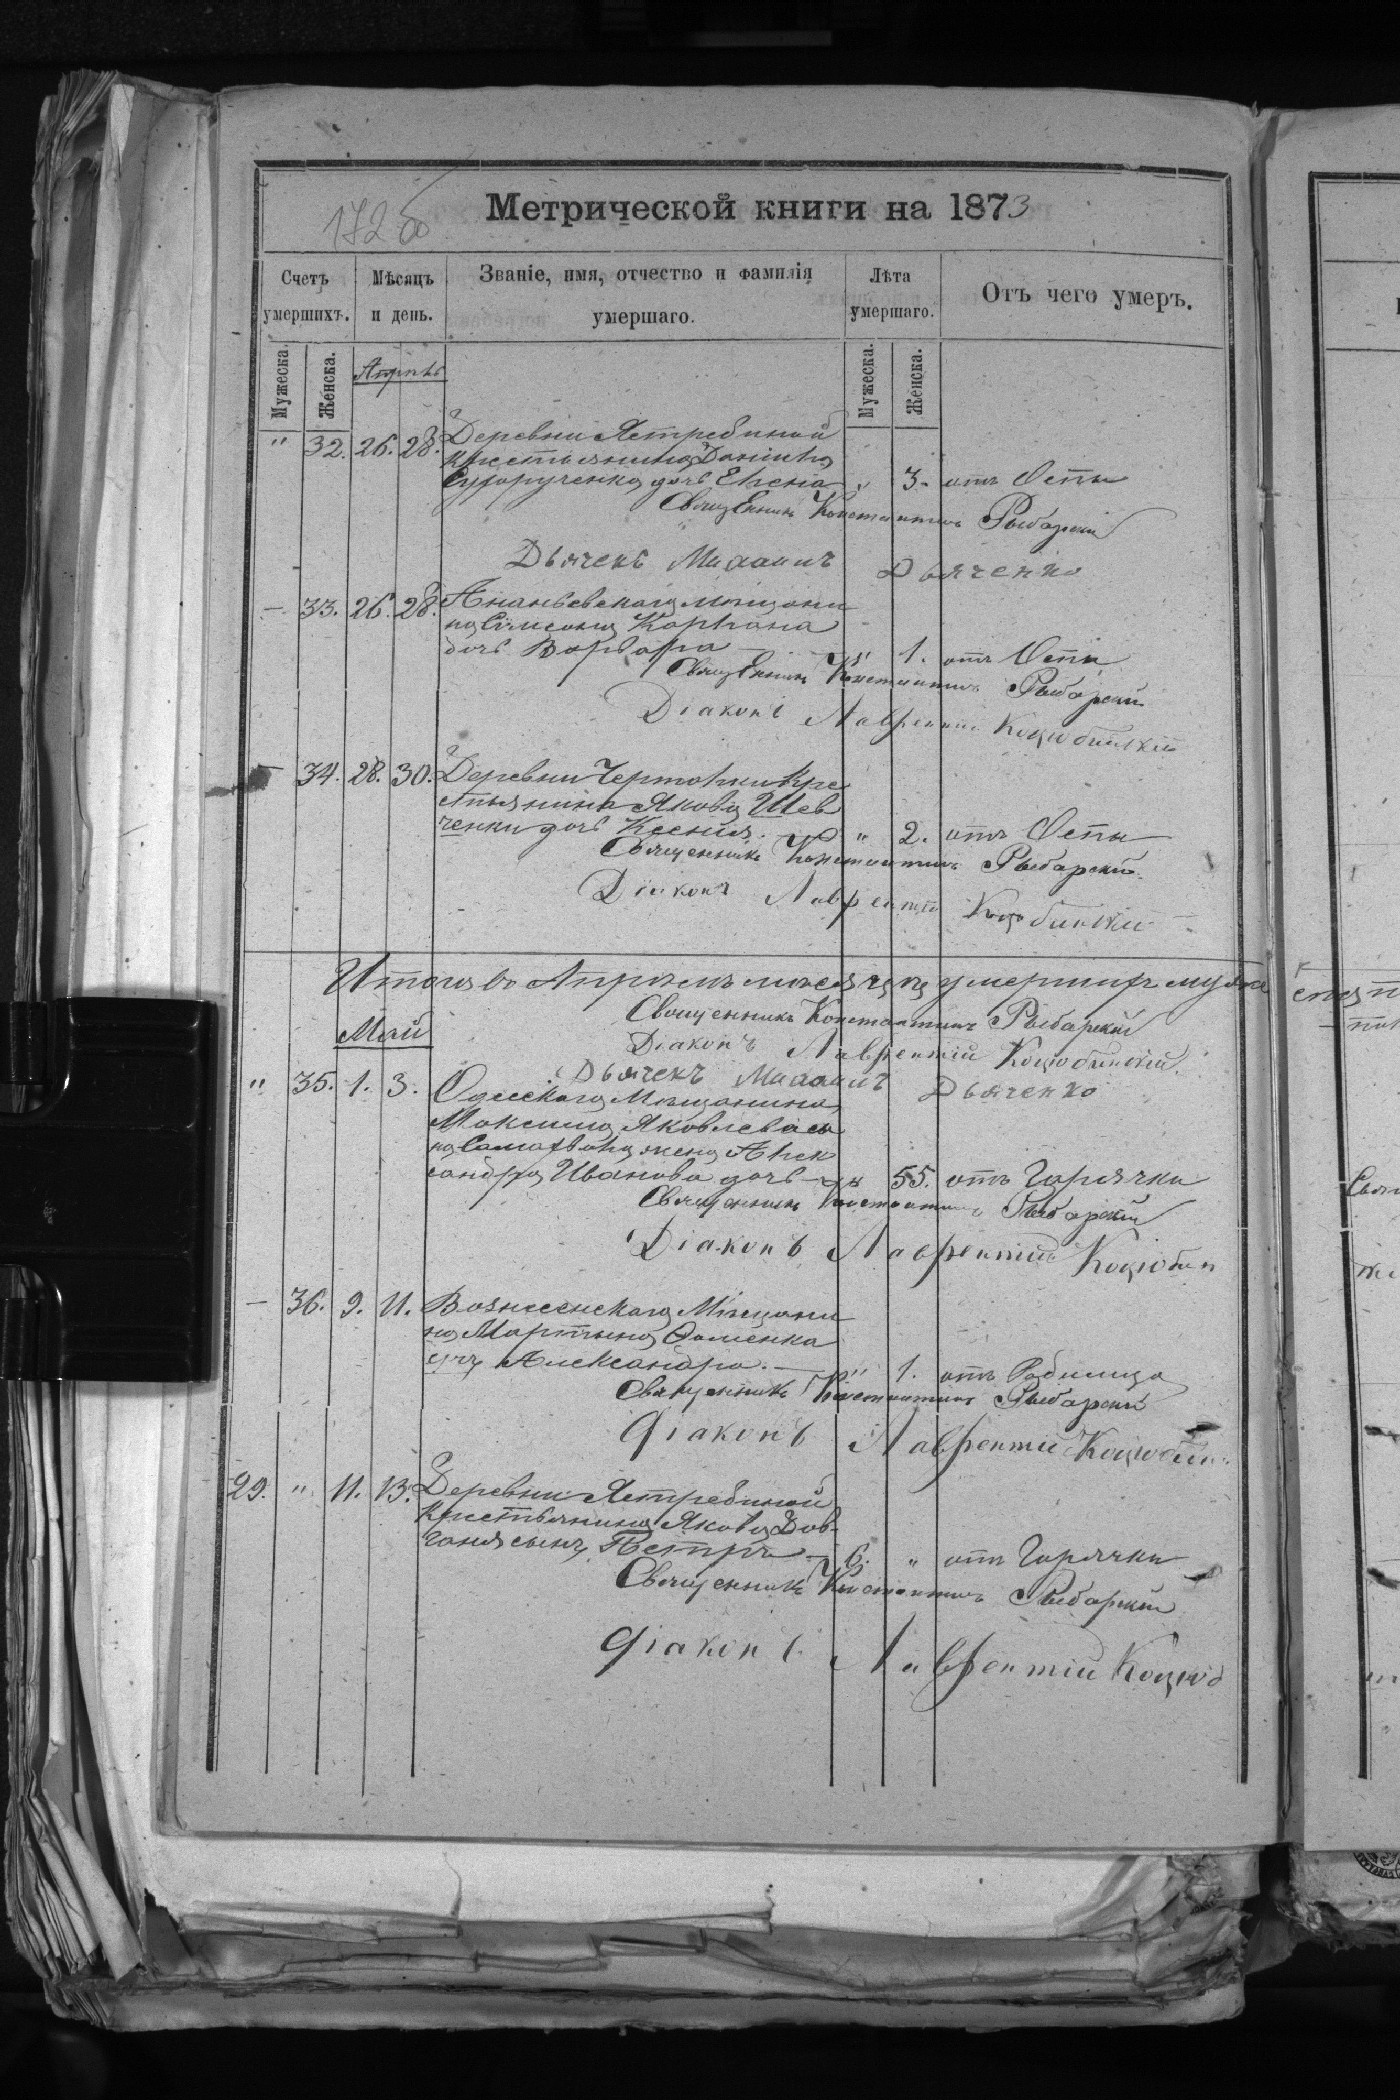 172об
Метрической книги на 1873
Счетъ умершихъ.
Мѣсяцъ и день.
Званіе, имя, отчество и фамилія умершаго.
Лѣта умершаго.
Отъ чего умеръ.
Мужеска.
Женска.
Мужеска.
Женска.
Апрѣль
" 32. 26. 28. Деревни Ястребиной
крестьянина Даніила
дочь Елена " 3. отъ Оспы
Священникъ Константинъ Рыбарскій
Дьячекъ Михаилъ Дьяченко
– 33. 26. 28. Ананьевскаго мѣщани
на Симеона Корһана
дочь Варвара " 1. отъ Оспы
Священникъ Константинъ Рыбарскій
Діаконъ Лаврентій Коцюбинскій
– 34. 28. 30. Деревни Чертолки Кре
стьянина Якова Шев
ченки дочь Ксенія. – " 2. отъ Оспы
Священникъ Константинъ Рыбарскій
Діаконъ Лаврентій Коцюбинскій
Итого въ Апрѣлѣ мѣсяцѣ умершихъ муже
Священникъ Константинъ Рыбарскій
Діаконъ Лаврентій Коцюбинскій.
Май
Дьячекъ Михаилъ Дьяченко
" 35. 1. 3. Одесскаго Мѣщанина
Максима Яковлева сы
на жена Алек
сандра Иванова дочь – " 55. отъ Горячки
Священникъ Константинъ Рыбарскій
Діаконъ Лаврентій Коцюбин
– 36. 9. 11. Вознесенскаго Мѣщани
на Мартына Фоменка
Александра. – " 1. отъ Родимца
Священникъ Константинъ Рыбарскій
Діаконъ Лаврентій Коцюбин
29. " 11. 13. Деревни Ястребиной
крестьянина Якова Дов-
ганя сынъ Петръ – 6. " отъ Горячки
Священникъ Константинъ Рыбарскій
Діаконъ Лаврентій Коцюб